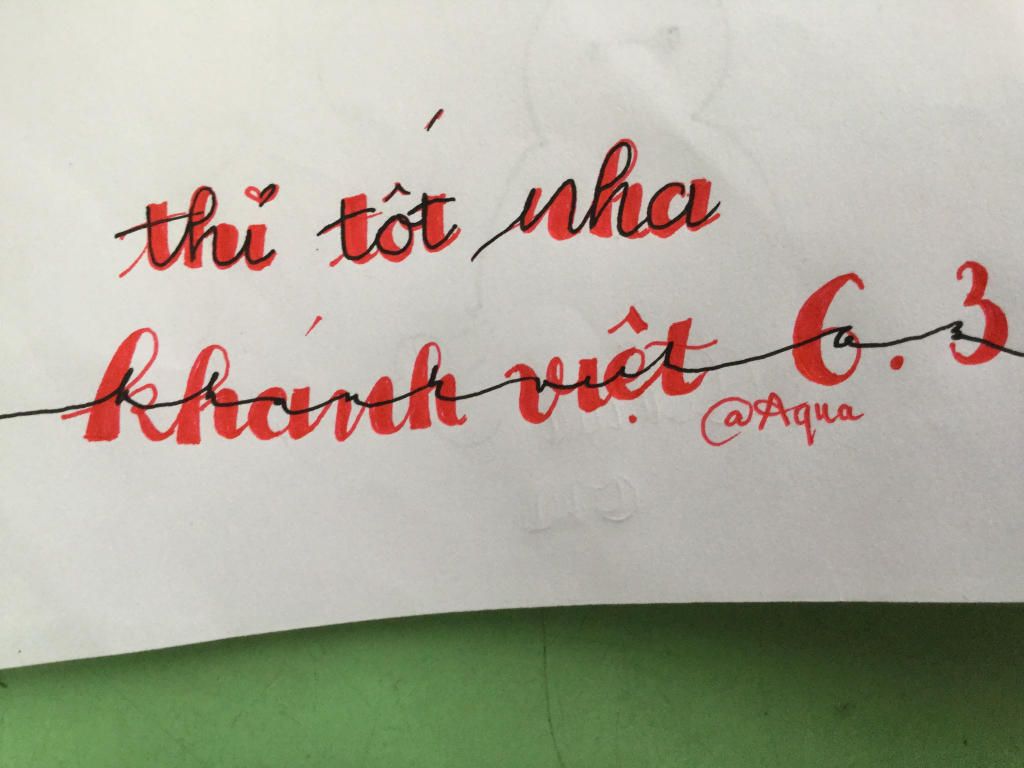 thi tốt nha
khánh việt 6.3
@Aqua